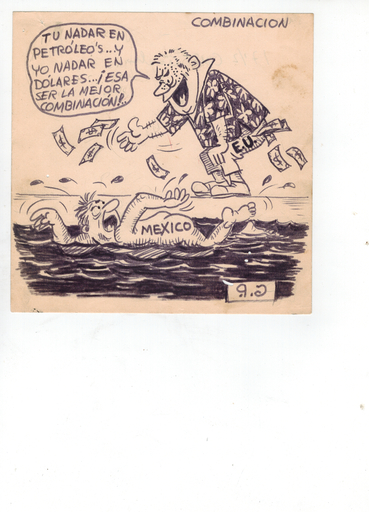 COMBINACION
TU NADAR EN
PETRÓLEO'S...Y
YO NADAR EN
DOLARES...¡ESA
SER LA MEJOR
COMBINACIÓN!..
E.U.
MEXICO